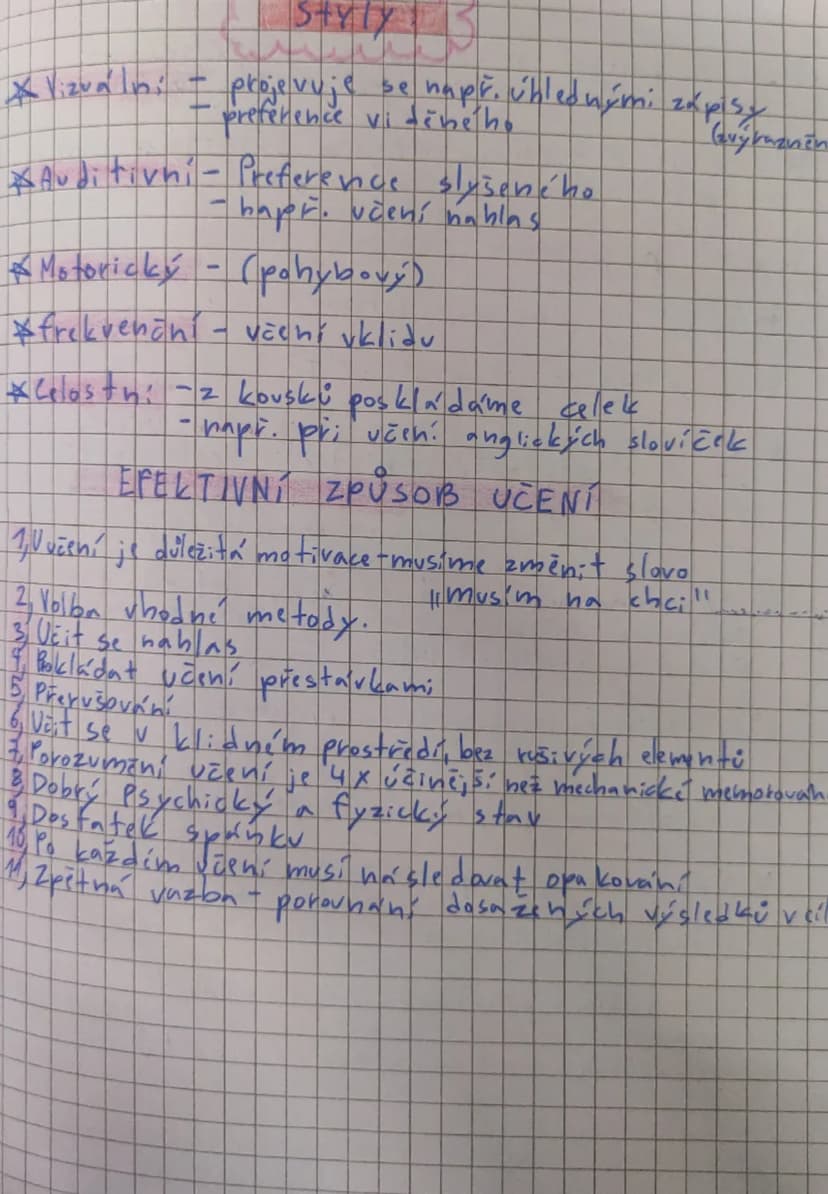 styly:
* Vizuální - projevuje se např. úhlednými zápisy
- preference viděného (zvýrazněn
* Auditivní - Preference slyšeného
- např. učení nahlas
* Motorický - (pohybový)
* frekvenční - učení vklidu
* Celostní - z kousků poskládáme celek
- např. při učení anglických slovíček
EFEKTIVNÍ ZPŮSOB UČENÍ
1, V učení je důležitá motivace - musíme změnit slovo
"musím na chci"..............
2, Volba vhodné metody.
3, Učit se nahlas
4, Pokládat učení přestávkami
5, Přerušování
6, Učit se v klidném prostředí, bez rušivých elementů
7, Porozumění učení je 4x účinější než mechanické memorován
8, Dobrý Psychický a fyzický stav
9, Dostatek spánku
10, Po každém učení musí následovat opakování
11, Zpětná vazba - porovnání dosažených výsledků v cíl